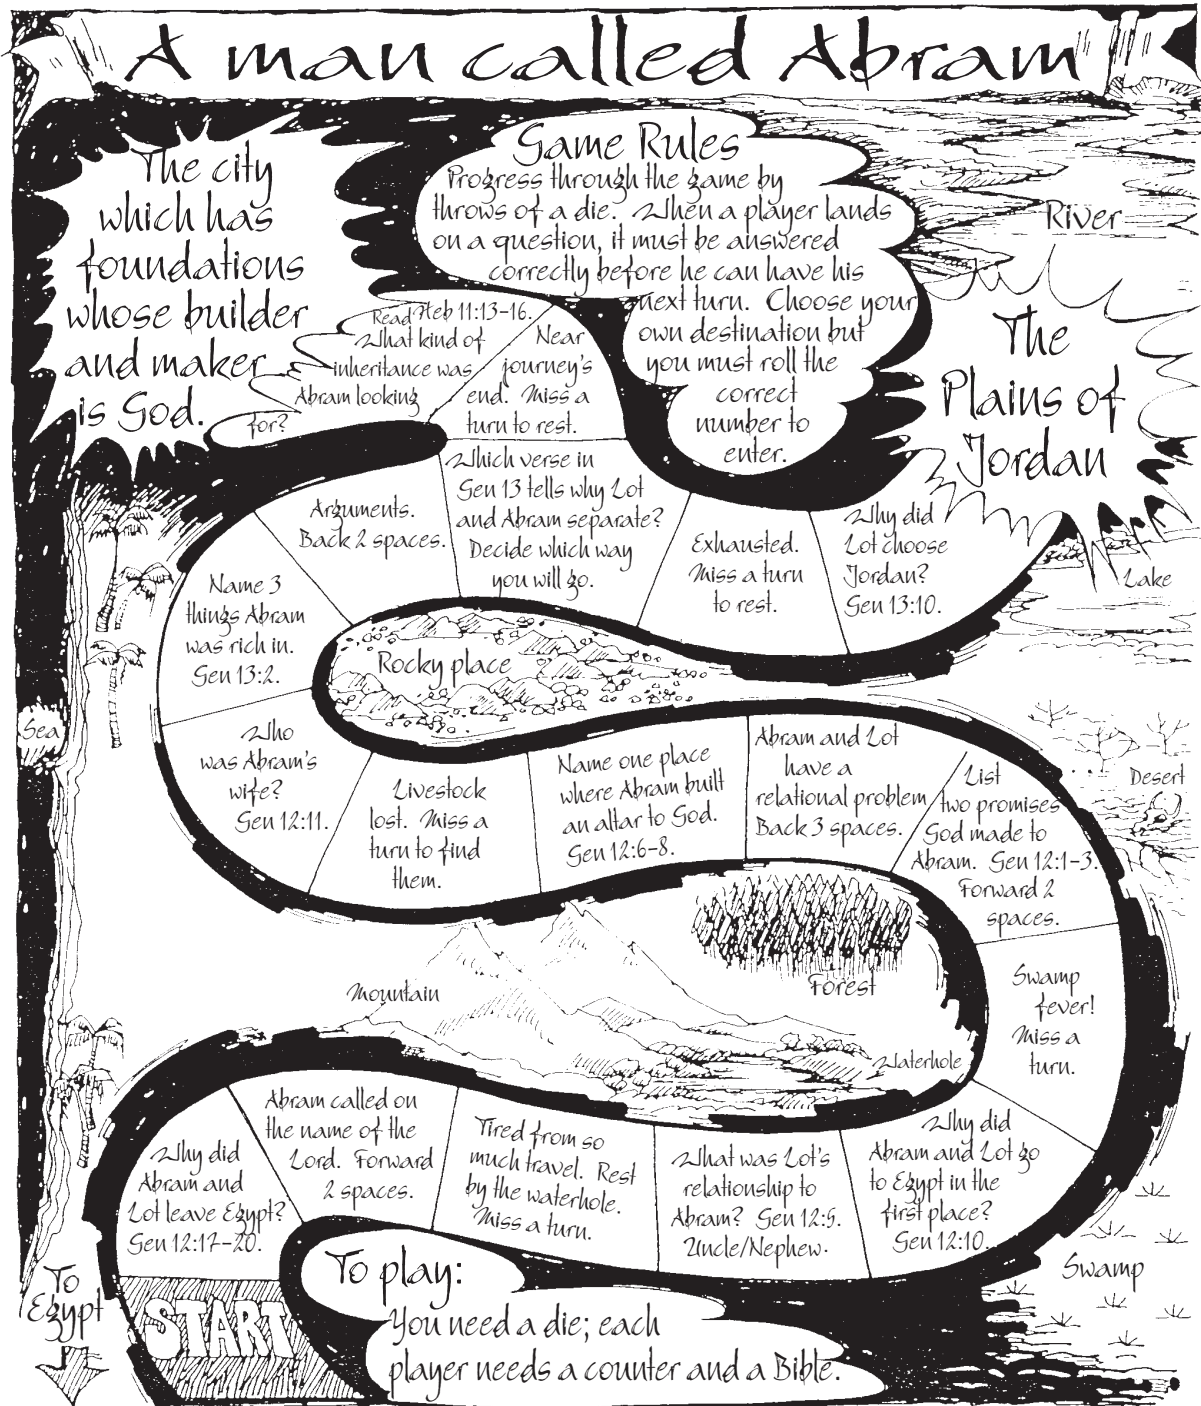 A man called Abram
The city
which has
foundations
whose builder
and maker
is God.
Game Rules
Progress through the game by
throws of a die. When a player lands
on a question, it must be answered
correctly before he can have his
next turn. Choose your
own destination but
you must roll the
correct
number to
enter.
River
The
Plains of
Jordan
Read Heb 11:13-16.
What kind of
inheritance was
Abram looking
for?
Near
journey's
end. Miss a
turn to rest.
Which verse in
Gen 13 tells why Lot
and Abram separate?
Decide which way
you will go.
Exhausted.
Miss a turn
to rest.
Why did
Lot choose
Jordan?
Gen 13:10.
Lake
Arguments.
Back 2 spaces.
Name 3
things Abram
was rich in.
Gen 13:2.
Rocky place
Sea
Who
was Abram's
wife?
Gen 12:11.
Livestock
lost. Miss a
turn to find
them.
Name one place
where Abram built
an altar to God.
Gen 12:6-8.
Abram and Lot
have a
relational problem
Back 3 spaces.
List
two promises
God made to
Abram. Gen 12:1-3.
Forward 2
spaces.
Desert
Forest
Mountain
Waterhole
Swamp
fever!
Miss a
turn.
Why did
Abram and Lot go
to Egypt in the
first place?
Gen 12:10.
What was Lot's
relationship to
Abram? Gen 12:5.
Uncle/Nephew.
Tired from so
much travel. Rest
by the waterhole.
Miss a turn.
Abram called on
the name of the
Lord. Forward
2 spaces.
Why did
Abram and
Lot leave Egypt?
Gen 12:17-20.
Swamp
To
Egypt
START
To play:
You need a die; each
player needs a counter and a Bible.